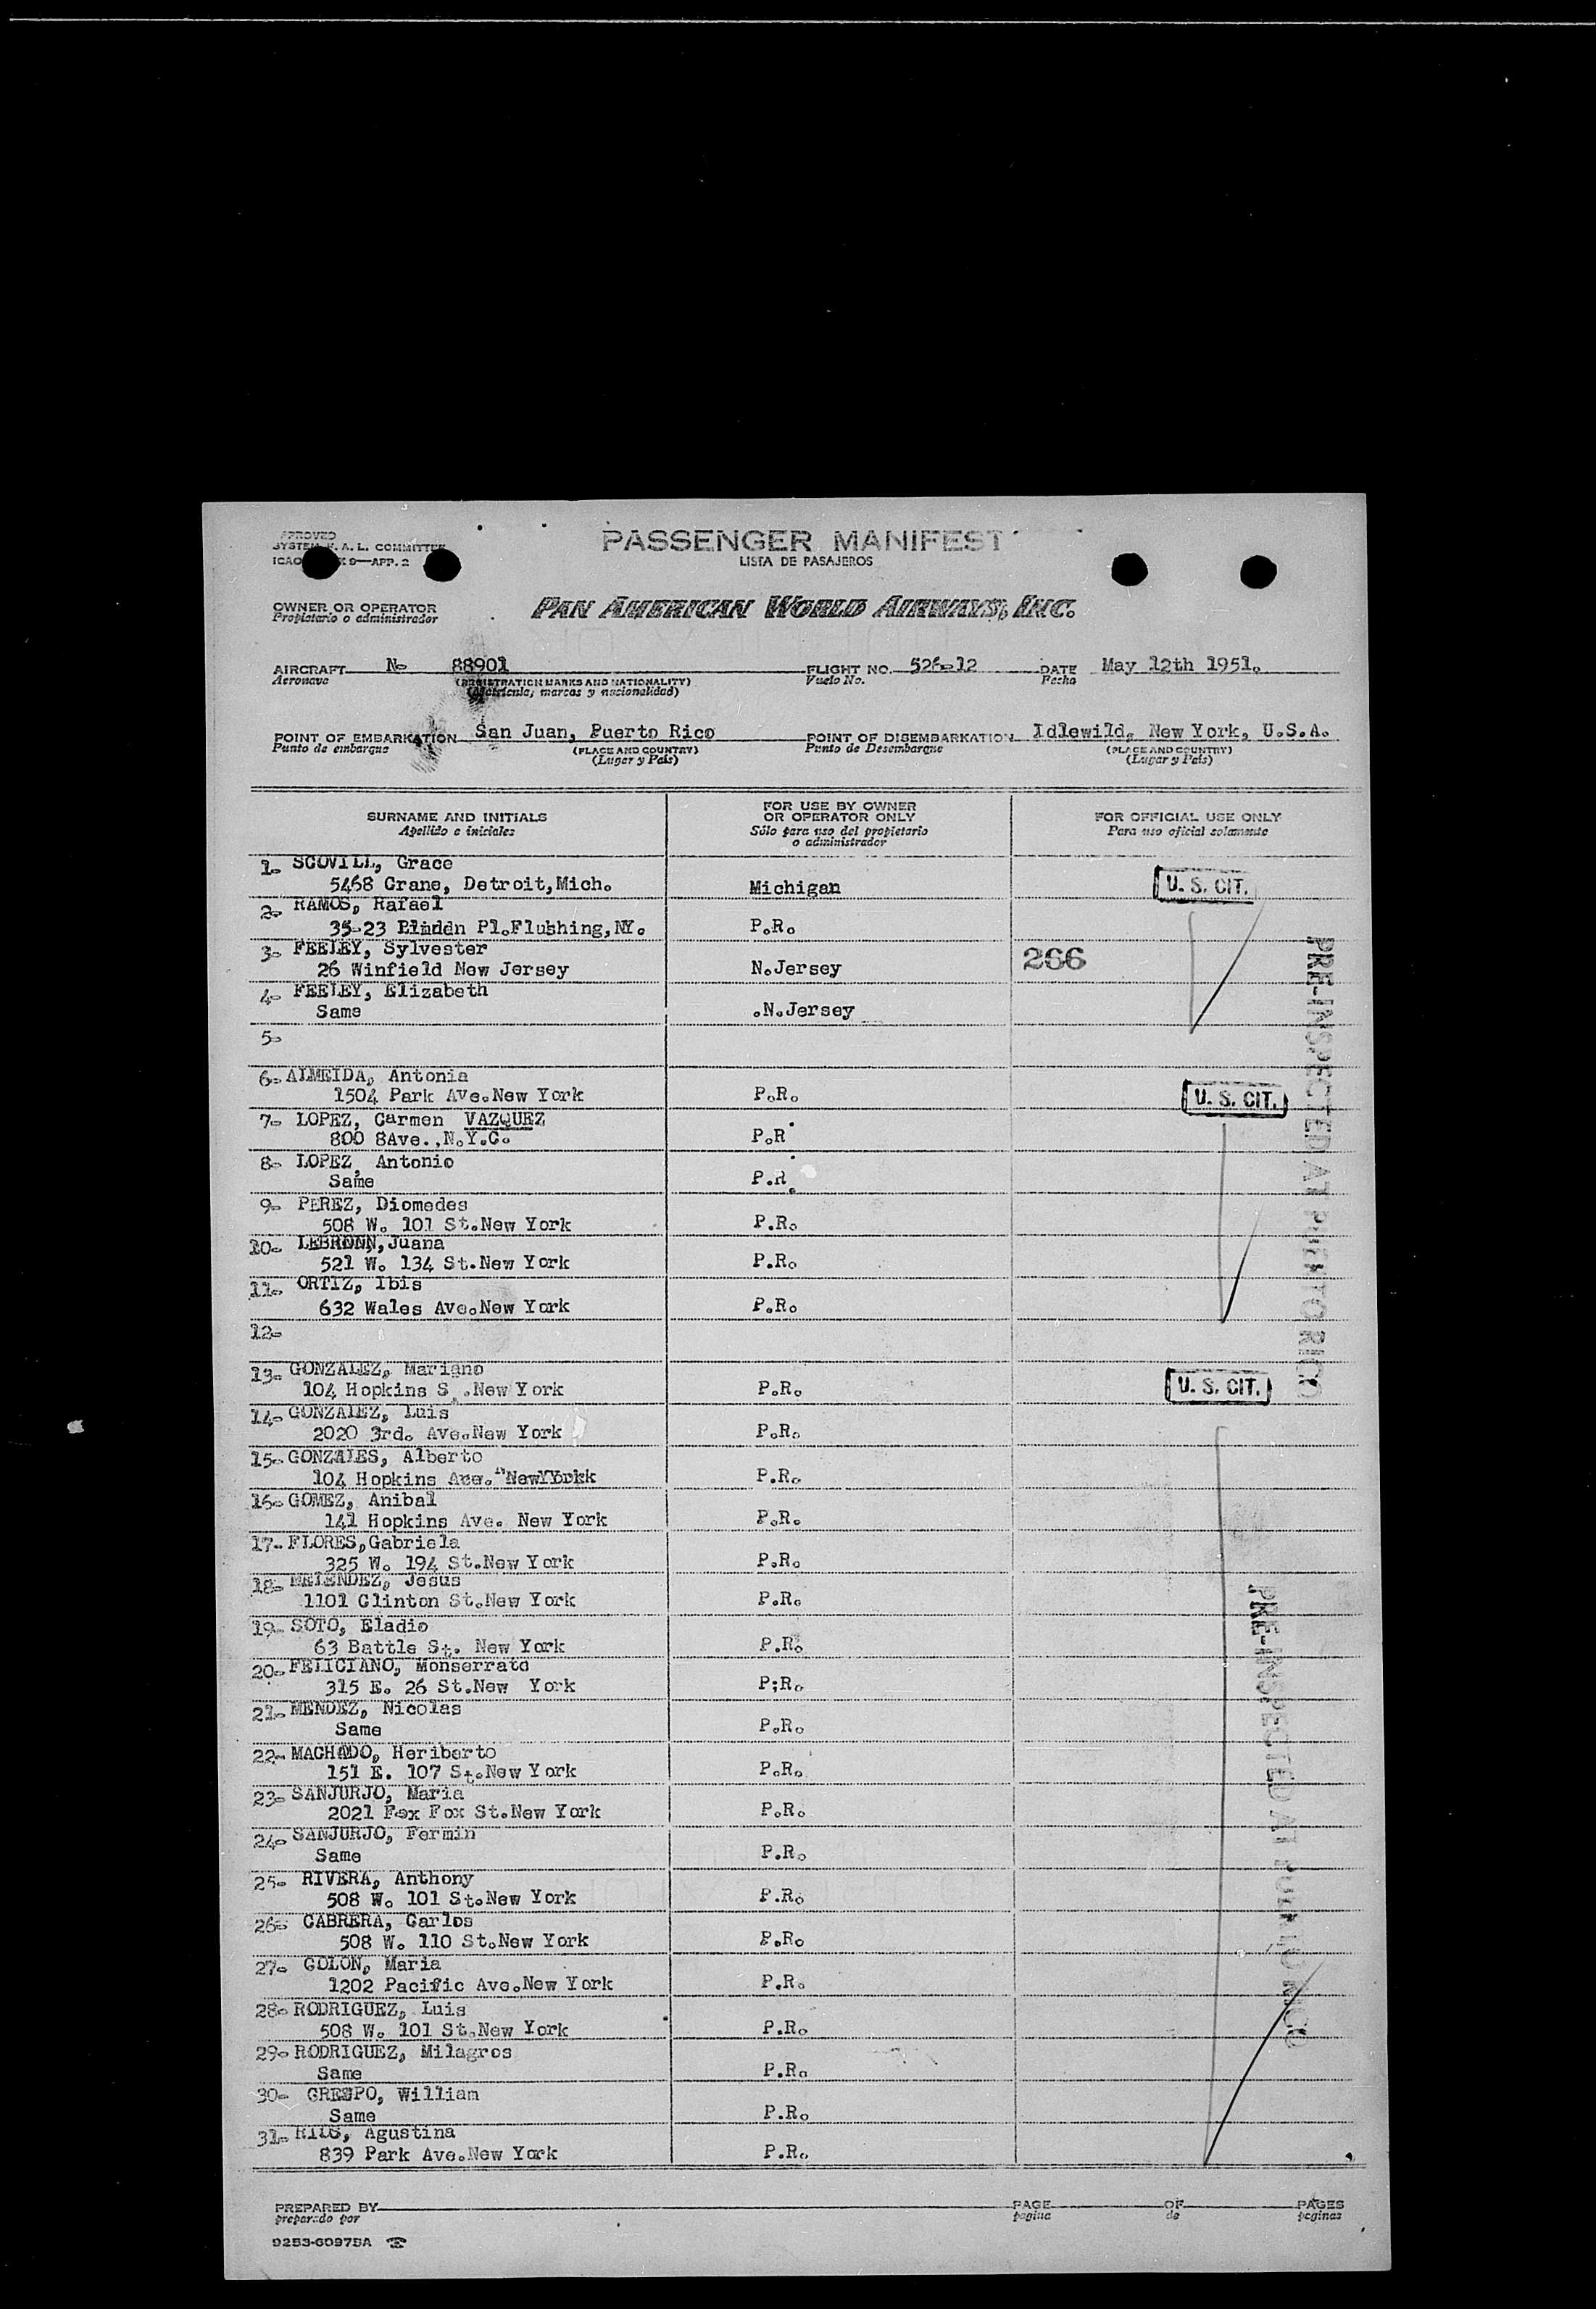 APPROVED
SYSTEM F. A. L. COMMITTEE
ICAO X 9—APP. 2
PASSENGER MANIFEST
LISTA DE PASAJEROS
OWNER OR OPERATOR
Propietario o administrador
PAN AMERICAN WORLD AIRWAYS, INC.
AIRCRAFT N- 88901 FLIGHT NO. 526-12 DATE May 12th 1951.
Aeronave (REGISTRATION MARKS AND NATIONALITY) Vuelo No. Fecha
(Matrícula, marcas y nacionalidad)
POINT OF EMBARKATION San Juan, Puerto Rico POINT OF DISEMBARKATION Idlewild, New York, U.S.A.
Punto de embarque (PLACE AND COUNTRY) Punto de Desembarque (PLACE AND COUNTRY)
(Lugar y País) (Lugar y País)
SURNAME AND INITIALS FOR USE BY OWNER OR OPERATOR ONLY FOR OFFICIAL USE ONLY
Apellido e iniciales Sólo para uso del propietario o administrador Para uso oficial solamente
1- SCOVILL, Grace
5468 Crane, Detroit,Mich. Michigan U. S. CIT.
2- RAMOS, Rafael
35-23 Pl.Flushing,NY. P.R.
3- FEELEY, Sylvester
26 Winfield New Jersey N.Jersey 266
4- FEELEY, Elizabeth
Same .N.Jersey
5-
6- ALMEIDA, Antonia
1504 Park Ave.New York P.R. U. S. CIT.
7- LOPEZ, Carmen VAZQUEZ
800 8Ave.,N.Y.C. P.R
8- LOPEZ, Antonio
Same P.R.
9- PEREZ, Diomedes
508 W. 101 St.New York P.R.
10- LEBRONN,Juana
521 W. 134 St.New York P.R.
11- ORTIZ, Ibis
632 Wales Ave.New York P.R.
12-
13- GONZALEZ, Mariano
104 Hopkins S .New York P.R. U. S. CIT.
14- GONZALEZ, Luis
2020 3rd. Ave.New York P.R.
15- GONZALES, Alberto
104 Hopkins Ave. P.R.
16- GOMEZ, Anibal
141 Hopkins Ave. New York P.R.
17- FLORES,Gabriela
325 W. 194 St.New York P.R.
18- MELENDEZ, Jesus
1101 Clinton St.New York P.R.
19- SOTO, Eladio
63 Battle St. New York P.R.
20- FELICIANO, Monserrate
315 E. 26 St.New York P;R.
21- MENDEZ, Nicolas
Same P.R.
22- MACHADO, Heriberto
151 E. 107 St.New York P.R.
23- SANJURJO, Maria
2021 Fox Fox St.New York P.R.
24- SANJURJO, Fermin
Same P.R.
25- RIVERA, Anthony
508 W. 101 St.New York P.R.
26- CABRERA, Carlos
508 W. 110 St.New York P.R.
27- COLON, Maria
1202 Pacific Ave.New York P.R.
28- RODRIGUEZ, Luis
508 W. 101 St.New York P.R.
29- RODRIGUEZ, Milagros
Same P.R.
30- CRESPO, William
Same P.R.
31- RIOS, Agustina
839 Park Ave.New York P.R.
PRE-INSPECTED AT PUERTO RICO
PRE-INSPECTED AT PUERTO RICO
PREPARED BY PAGE OF PAGES
preparado por página de páginas
9253-60975A